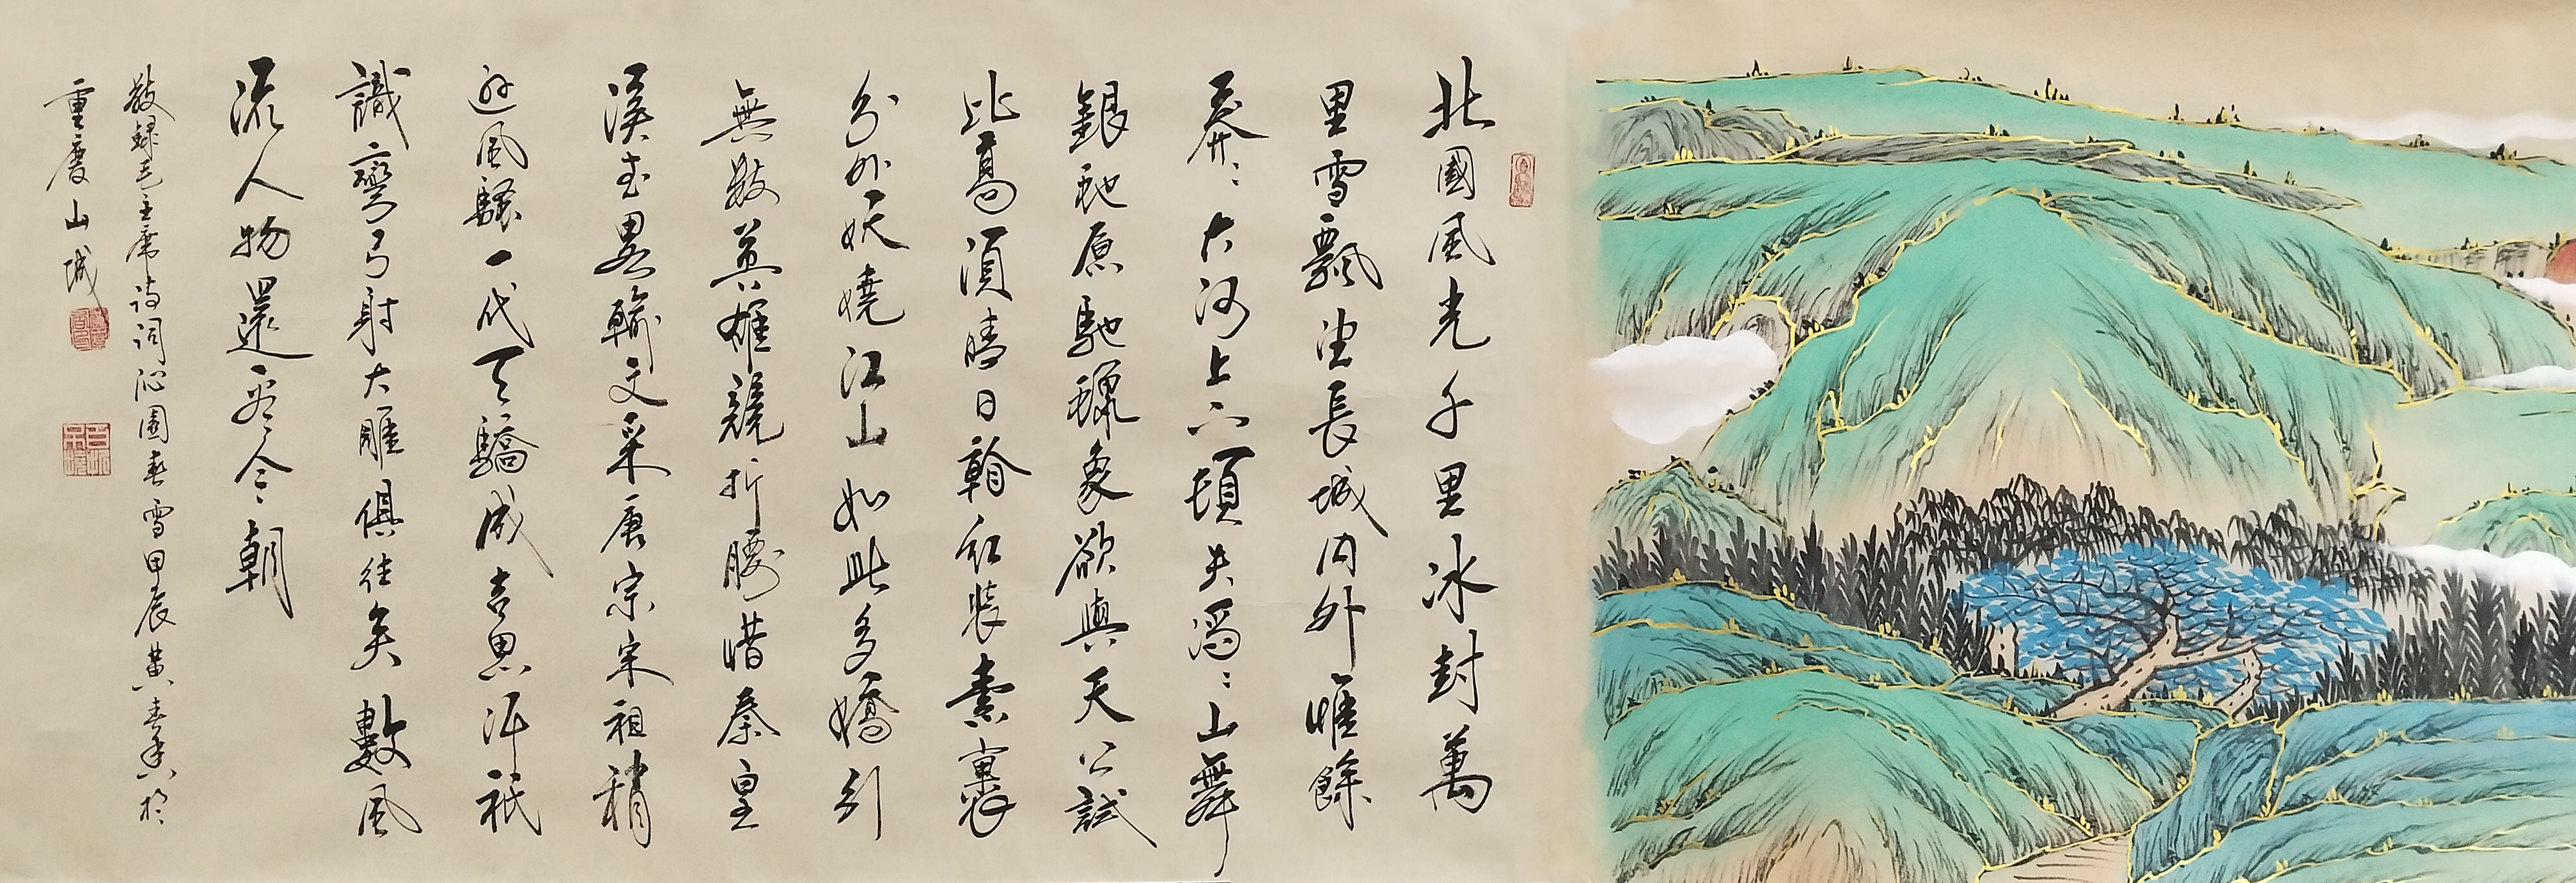 北國風光千里冰封萬
里雪飄望長城內外惟餘
莽〻大河上下頓失滔〻山舞
銀蛇原馳蠟象欲與天公試
比高須晴日看紅裝素裹
分外妖嬈江山如此多嬌引
無數英雄競折腰惜秦皇
漢武略輸文采唐宗宋祖稍
遜風騷一代天驕成吉思汗祇
識彎弓射大雕俱往矣數風
流人物還看今朝
敬録毛主席詩詞沁園春雪甲辰黃於
重慶山城